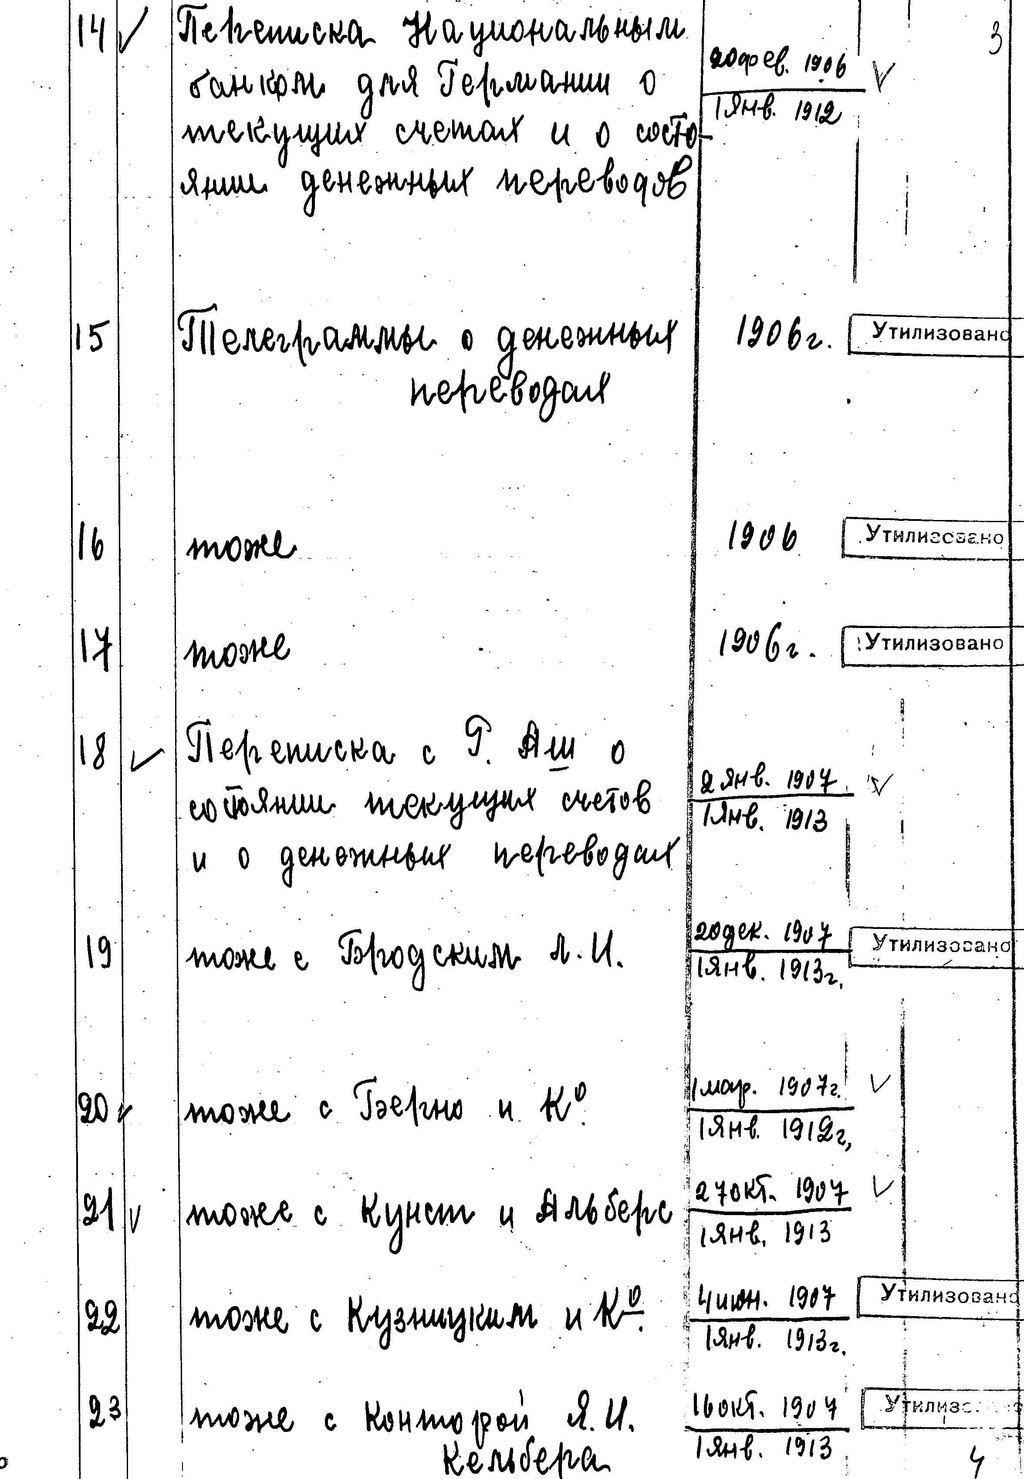 3
14 Переписка Национальным
банком для Германии о
текущих счетах и о состо-
янии денежных переводов
20 фев. 1906
1 янв. 1912
15 Телеграммы о денежных
переводах
1906г. Утилизовано
16 тоже 1906 Утилизовано
17 тоже 1906г. Утилизовано
18 Переписка с Г. Аш о
состоянии текущих счетов
и о денежных переводах
2 янв. 1907
1 янв. 1913
19 тоже с Бродским Л.И.
20 дек. 1907
1 янв. 1913г.
Утилизовано
20 тоже с и Ко
1 мар. 1907г.
1 янв. 1912г.
21 тоже с Кунст и Альберс
27 окт. 1907
1 янв. 1913
22 тоже с Кузницким и Ко.
4 июн. 1907
1 янв. 1913г.
Утилизовано
23 тоже с Конторой Я.И.
Кельбера
16 окт. 1907
1 янв. 1913
4